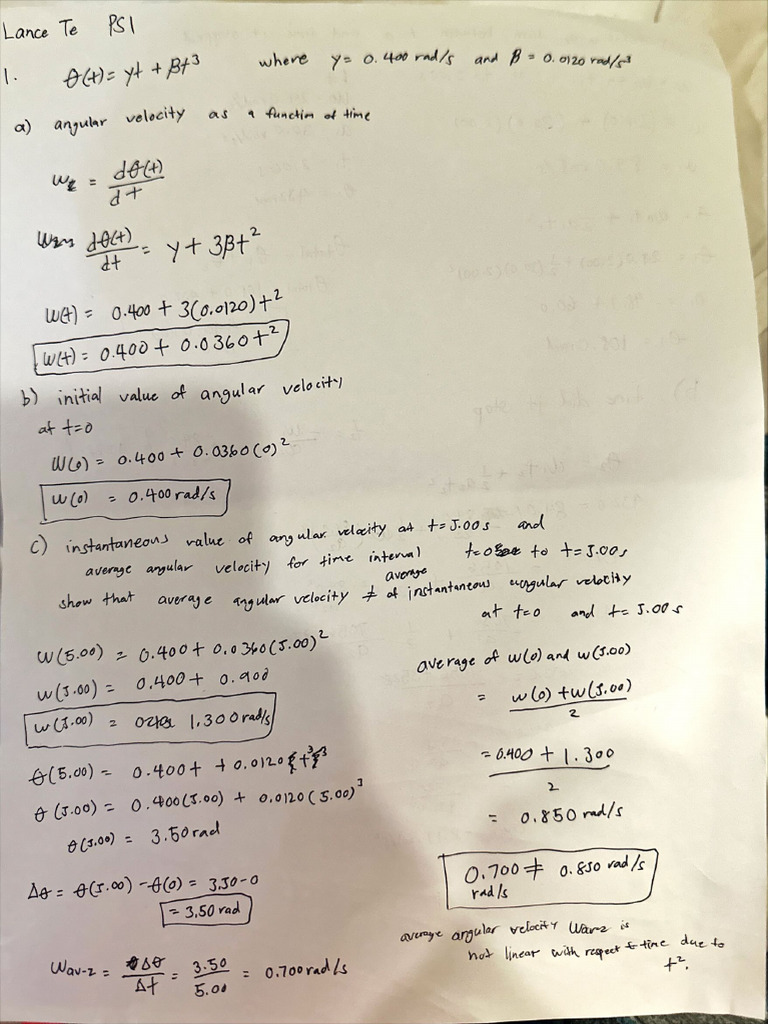 Lance Te PS1
1. θ(t) = γt + βt³ where γ = 0.400 rad/s and β = 0.0120 rad/s³
a) angular velocity as a function of time
ω_z = dθ(t)/dt
dθ(t)/dt = γ + 3βt²
ω(t) = 0.400 + 3(0.0120)t²
ω(t) = 0.400 + 0.0360t²
b) initial value of angular velocity
at t=0
ω(0) = 0.400 + 0.0360(0)²
ω(0) = 0.400 rad/s
c) instantaneous value of angular velocity at t=5.00s and
average angular velocity for time interval t=0 to t=5.00s
show that average angular velocity ≠ average of instantaneous angular velocity
at t=0 and t=5.00s
ω(5.00) = 0.400 + 0.0360(5.00)²
ω(5.00) = 0.400 + 0.900
ω(5.00) = 1.300 rad/s
θ(5.00) = 0.400t + 0.0120t³
θ(5.00) = 0.400(5.00) + 0.0120(5.00)³
θ(5.00) = 3.50 rad
Δθ = θ(5.00) - θ(0) = 3.50 - 0
= 3.50 rad
ω_av-z = Δθ/Δt = 3.50/5.00 = 0.700 rad/s
average of ω(0) and ω(5.00)
= ω(0) + ω(5.00)/2
= 0.400 + 1.300/2
= 0.850 rad/s
0.700 ≠ 0.850 rad/s
rad/s
average angular velocity ω_av-z is
not linear with respect to time due to
t².